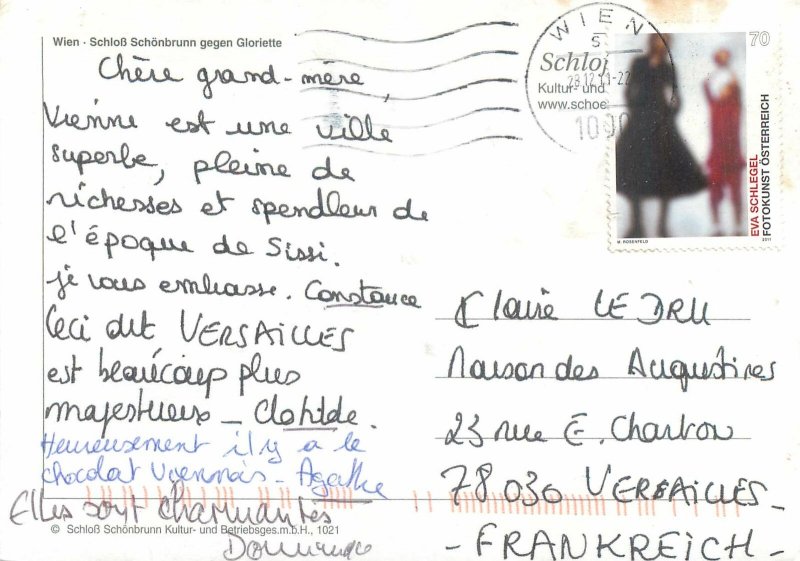 Wien · Schloß Schönbrunn gegen Gloriette
Chère grand-mère,
Vienne est une ville
superbe, pleine de
richesses et spendleur de
l'époque de Sissi.
je vous embrasse. Constance
Ceci dit VERSAILLES
est beaucoup plus
majestueux _ Clotilde.
Heureusement il y a le
chocolat Viennois - Agathe
Elles sont charmantes
Dominique
© Schloß Schönbrunn Kultur- und Betriebsges.m.b.H., 1021
WIEN
S
Schloß
Kultur- und
www.schoe
70
EVA SCHLEGEL
FOTOKUNST ÖSTERREICH
M. ROSENFELD
2011
Claire LEDRU
Maison des Augustines
23 rue E. Charton
78030 VERSAILLES-
- FRANKREICH -